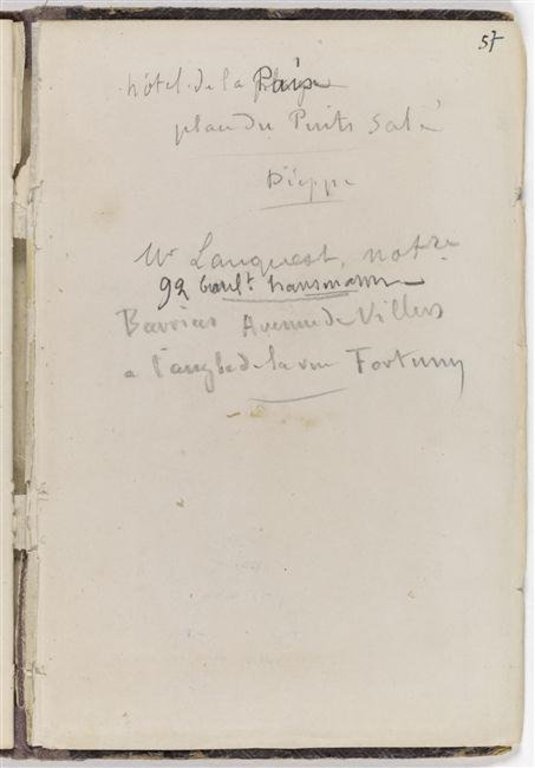 57
hôtel de la Paix
place du Puits Salé
Dieppe
Mr Lanquest, notre
92 boult hausmann
Barrias Avenue de Villers
a l'angle de la rue Fortuny